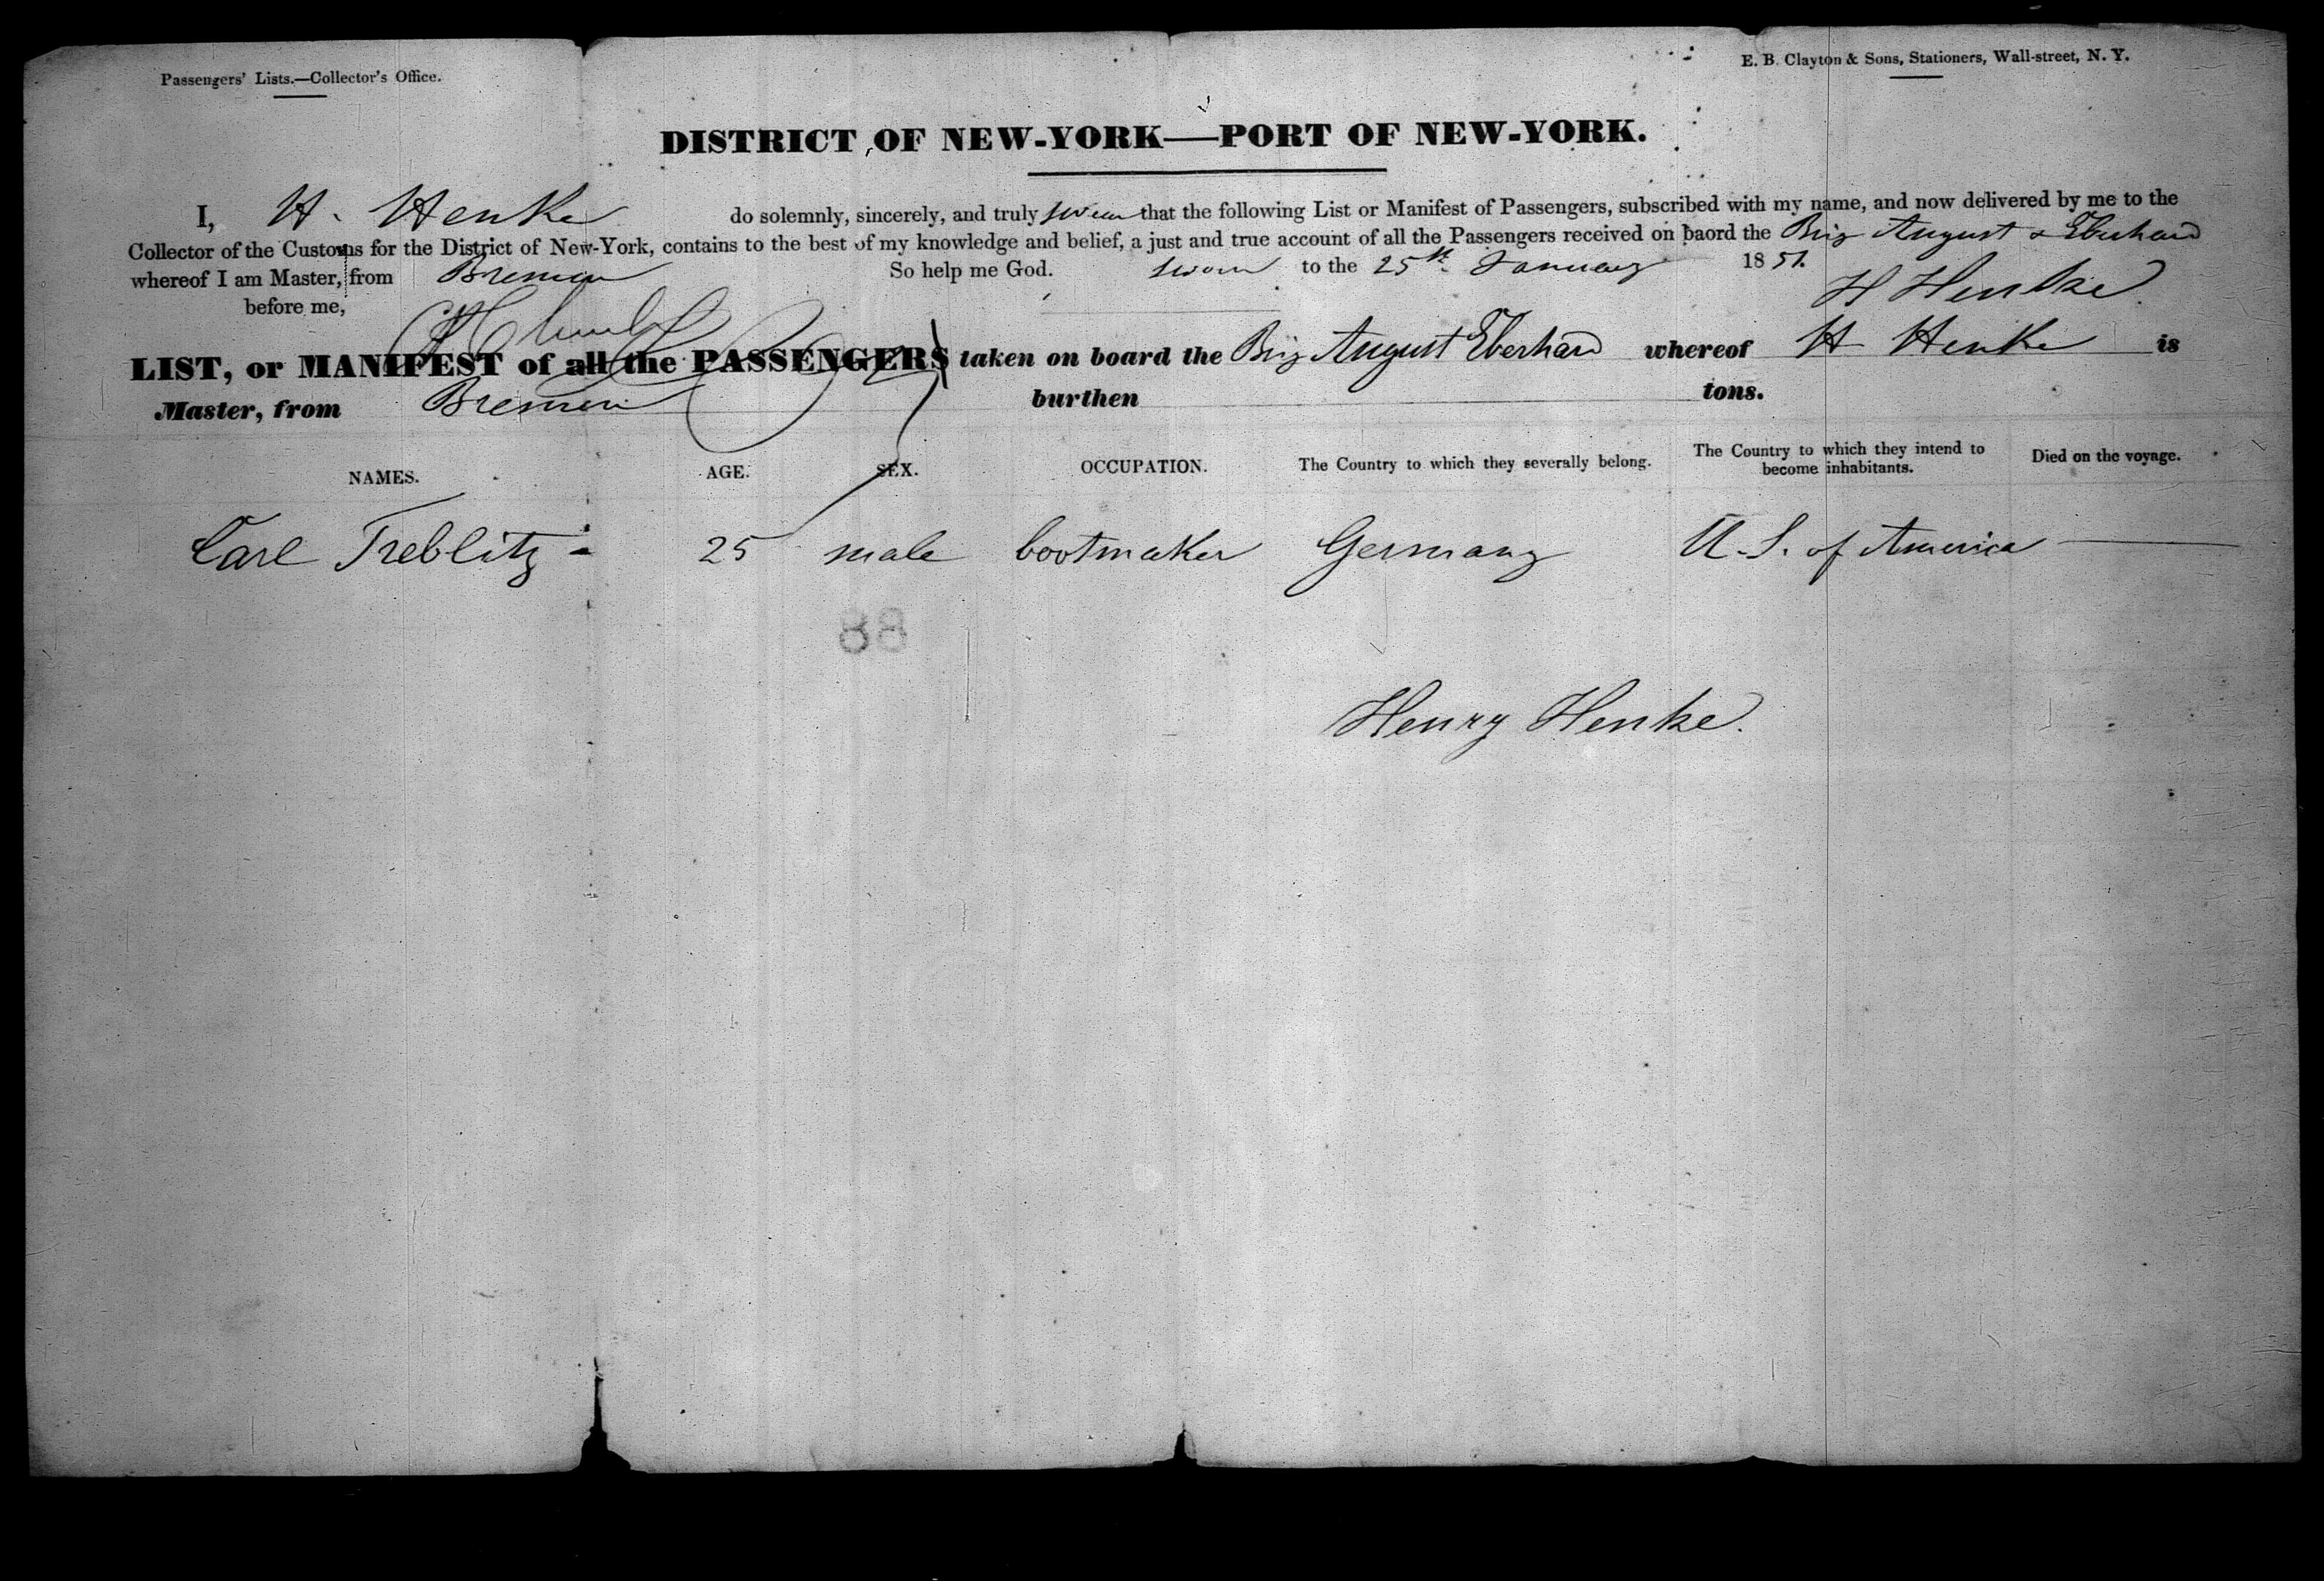 Passengers' Lists.—Collector's Office.
E. B. Clayton & Sons, Stationers, Wall-street, N. Y.
DISTRICT OF NEW-YORK—PORT OF NEW-YORK.
I, H. Henke do solemnly, sincerely, and truly swear that the following List or Manifest of Passengers, subscribed with my name, and now delivered by me to the
Collector of the Customs for the District of New-York, contains to the best of my knowledge and belief, a just and true account of all the Passengers received on baord the Brig August & Eberhard
whereof I am Master, from Bremen So help me God. Sworn to the 25th January 1851.
before me, H Henke.
LIST, or MANIFEST of all the PASSENGERS taken on board the Brig August Eberhard whereof H Henke is
Master, from Bremen burthen tons.
NAMES. AGE. SEX. OCCUPATION. The Country to which they severally belong. The Country to which they intend to become inhabitants. Died on the voyage.
Carl Treblitz - 25 male bootmaker Germany U. S. of America —
88
Henry Henke.